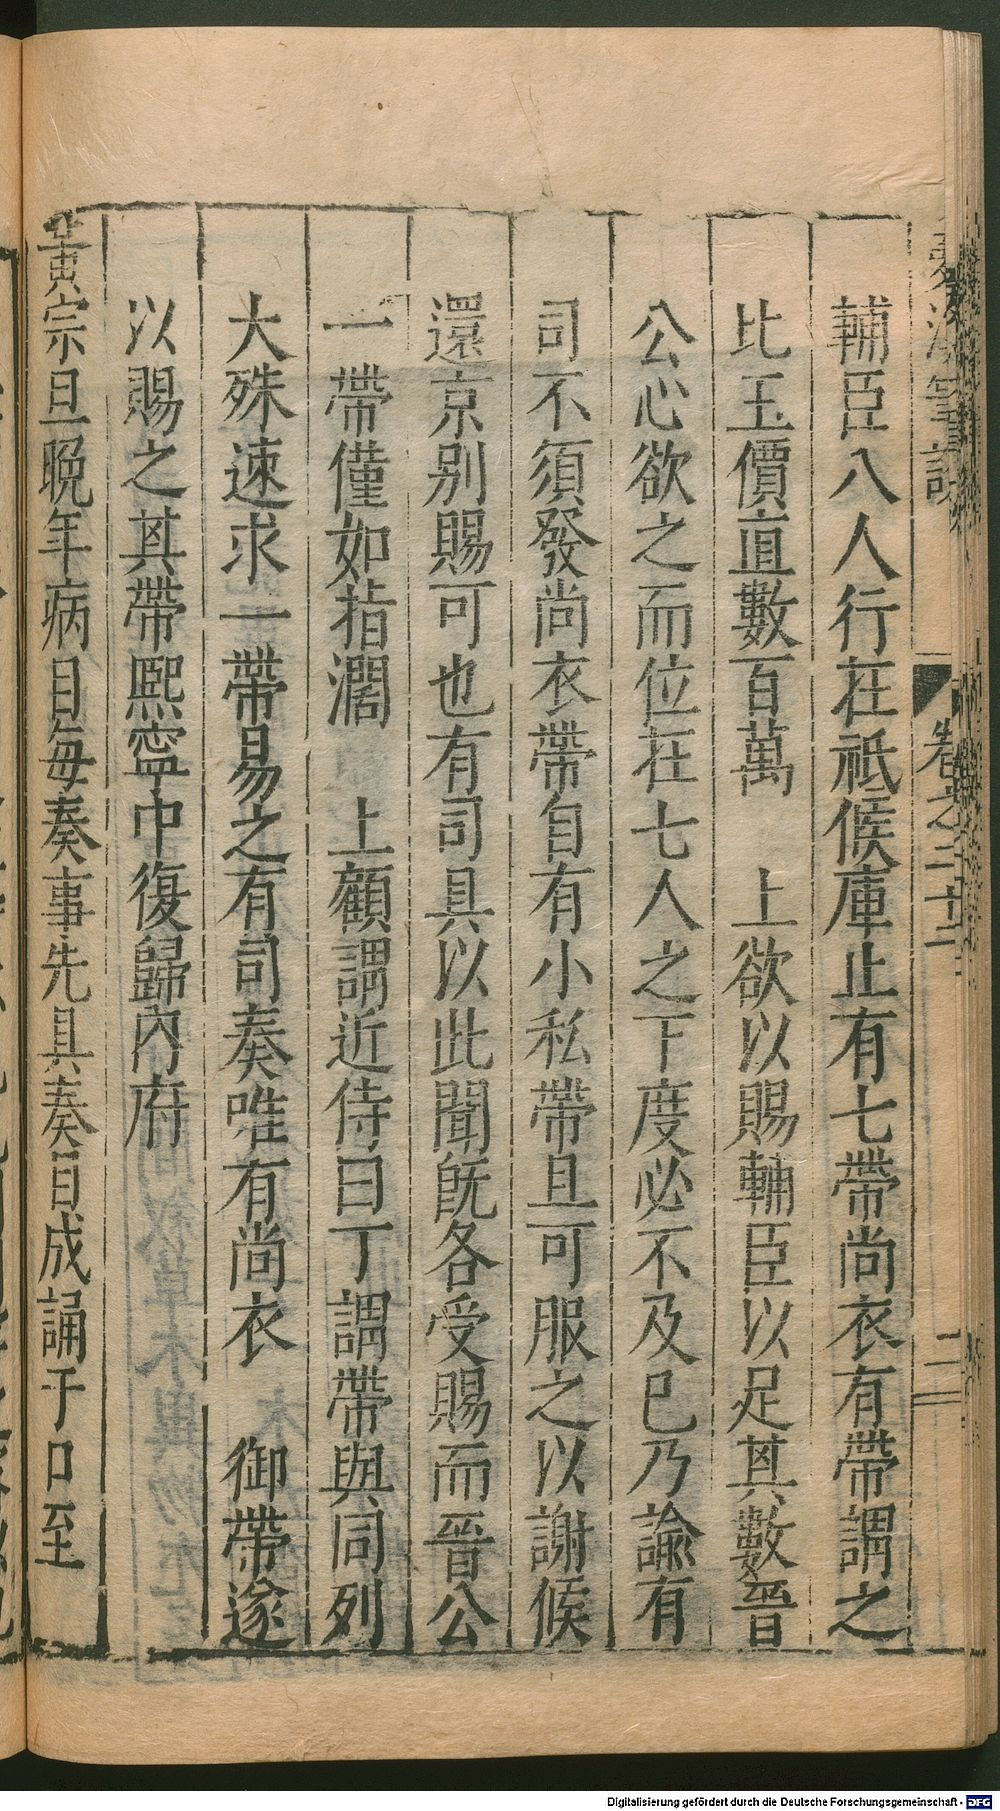 夢溪筆談
卷之二十二
二
輔臣八人行在祗候庫止有七帶尚衣有帶謂之
比玉價直數百萬　上欲以賜輔臣以足其數晉
公心欲之而位在七人之下度必不及已乃諭有
司不須發尚衣帶自有小私帶且可服之以謝候
還京别賜可也有司具以此聞旣各受賜而晉公
一帶僅如指濶　上顧謂近侍曰丁謂帶與同列
大殊速求一帶易之有司奏唯有尚衣　御帶遂
以賜之其帶熙寧中復歸內府
黃宗旦晚年病目每奏事先具奏目成誦于口至
Digitalisierung gefördert durch die Deutsche Forschungsgemeinschaft - DFG